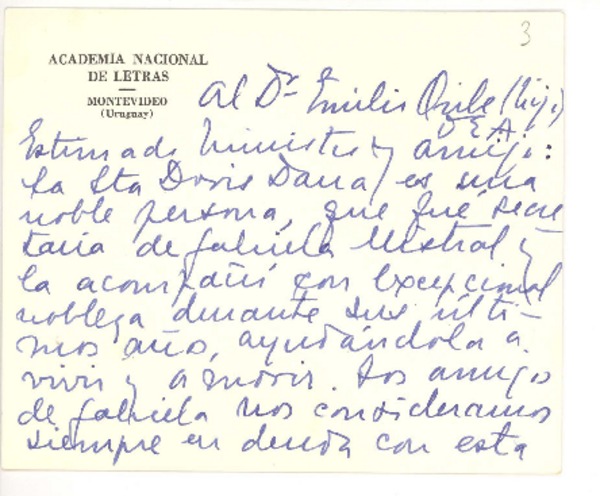 3
ACADEMIA NACIONAL
DE LETRAS
MONTEVIDEO
(Uruguay)
Al Dr. Emilio Oribe (hijo)
O E A.
Estimado Ministro y amigo:
la Sta Doris Dana, es una
noble persona, que fué secre
taria de Gabriela Mistral y
la acompañó con excepcional
nobleza durante sus últi-
mos años, ayudándola a
vivir y a morir. Los amigos
de Gabriela nos consideramos
siempre en deuda con esta